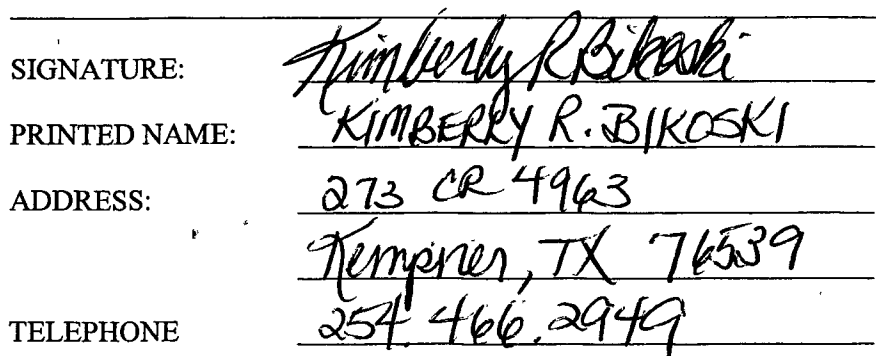 SIGNATURE: Kimberly R Bikoski
PRINTED NAME: KIMBERLY R. BIKOSKI
ADDRESS: 273 CR 4963
Kempner, TX 76539
TELEPHONE 254.466.2949